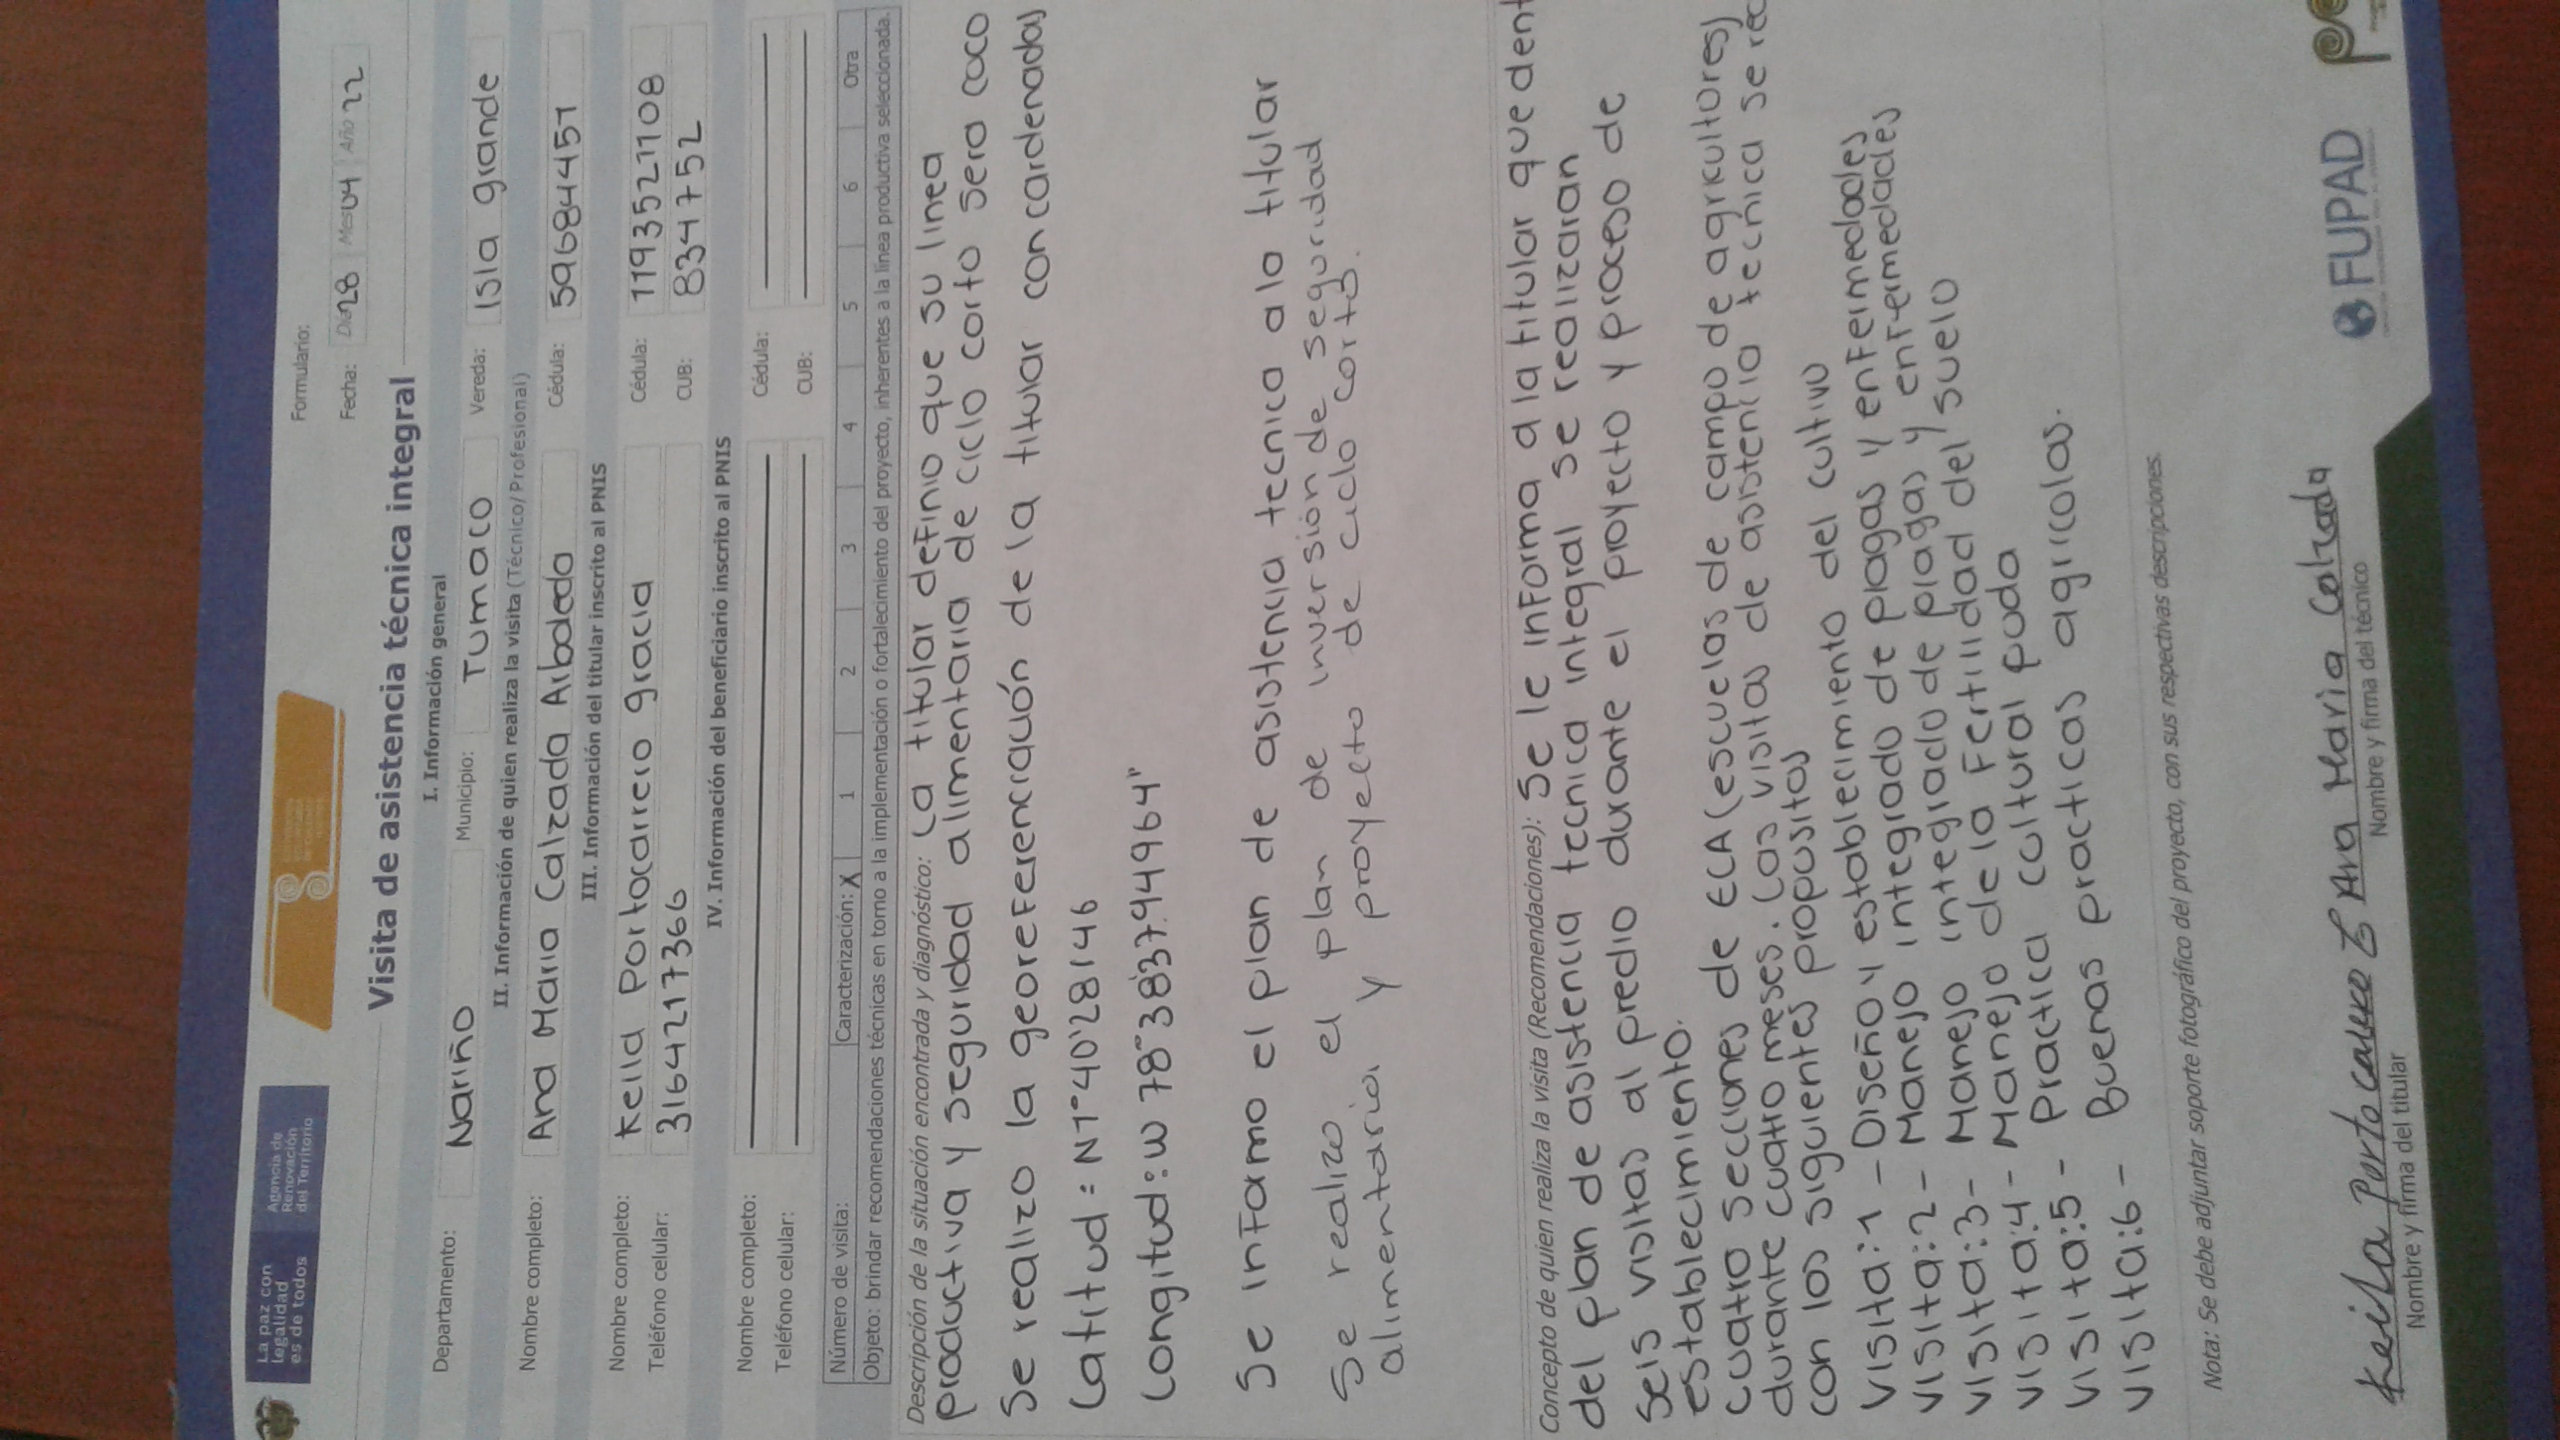 La paz con
legalidad
es de todos
Agencia de
Renovación
del Territorio
Formulario:
Fecha: Día 28 Mes 04 Año 22
Visita de asistencia técnica integral
I. Información general
Departamento: Nariño Municipio: Tumaco Vereda: Isla grande
II. Información de quien realiza la visita (Técnico/Profesional)
Nombre completo: Ana Maria Calzada Arboleda Cédula: 59684451
III. Información del titular inscrito al PNIS
Nombre completo: Keila Portocarrero gracia Cédula: 1193521108
Teléfono celular: 3164217366 CUB: 834752
IV. Información del beneficiario inscrito al PNIS
Nombre completo: Cédula:
Teléfono celular: CUB:
Número de visita: Caracterización: X 1 2 3 4 5 6 Otra
Objeto: brindar recomendaciones técnicas en torno a la implementación o fortalecimiento del proyecto, inherentes a la línea productiva seleccionada.
Descripción de la situación encontrada y diagnóstico: La titular definio que su linea
productiva y seguridad alimentaria de ciclo corto sera coco
Se realizo la georeferenciación de la titular con cardenadas
Latitud: N1°40'28146
Longitud: W 78°38'37.944964"
Se informo el plan de asistencia tecnica a la titular
Se realizo el plan de inversión de seguridad
alimentaria y proyecto de ciclo corto.
Concepto de quien realiza la visita (Recomendaciones): Se le informa a la titular que dent
del plan de asistencia tecnica integral se realizaran
seis visitas al predio durante el proyecto y proceso de
establecimiento.
cuatro secciones de ECA (escuelas de campo de agricultores)
durante cuatro meses. Las visitas de asistencia tecnica se rec
con los siguientes propositos
visita:1 - Diseño y establecimiento del cultivo
visita:2 - Manejo integrado de plagas y enfermedades
visita:3 - Manejo integrado de plagas y enfermedades
visita:4 - Manejo de la fertilidad del suelo
visita:5 - Practica cultural poda
visita:6 - Buenas practicas agricolas.
Nota: Se debe adjuntar soporte fotográfico del proyecto, con sus respectivas descripciones.
Keila Portocarrero G Ana Maria Calzada
Nombre y firma del titular Nombre y firma del técnico
FUPAD